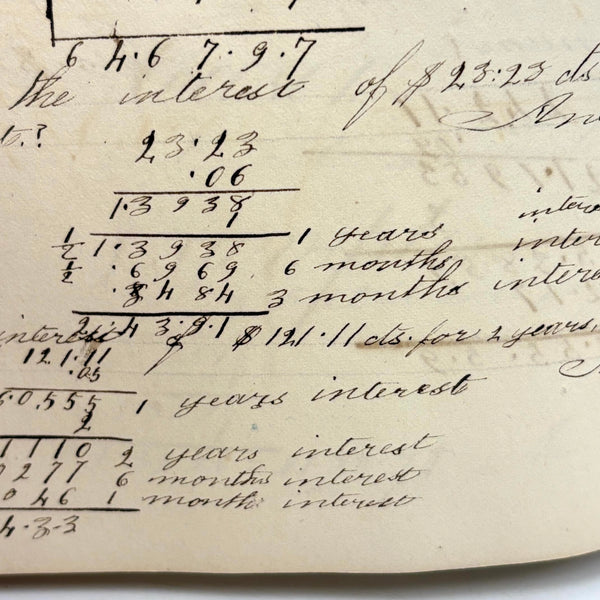 6 4·6 7·9·7
the interest of $23:23 cts
t.?
23·23
·06
1·3938
1
1/2 1·3938 1 years
1/2 ·6969 6 months
·3484 3 months
2·43·9·1
interest of $121·11 cts. for 2 years,
121·11
·05
6·0555 1 years interest
2
1110 2 years interest
0277 6 months interest
046 1 months interest
4·3·3